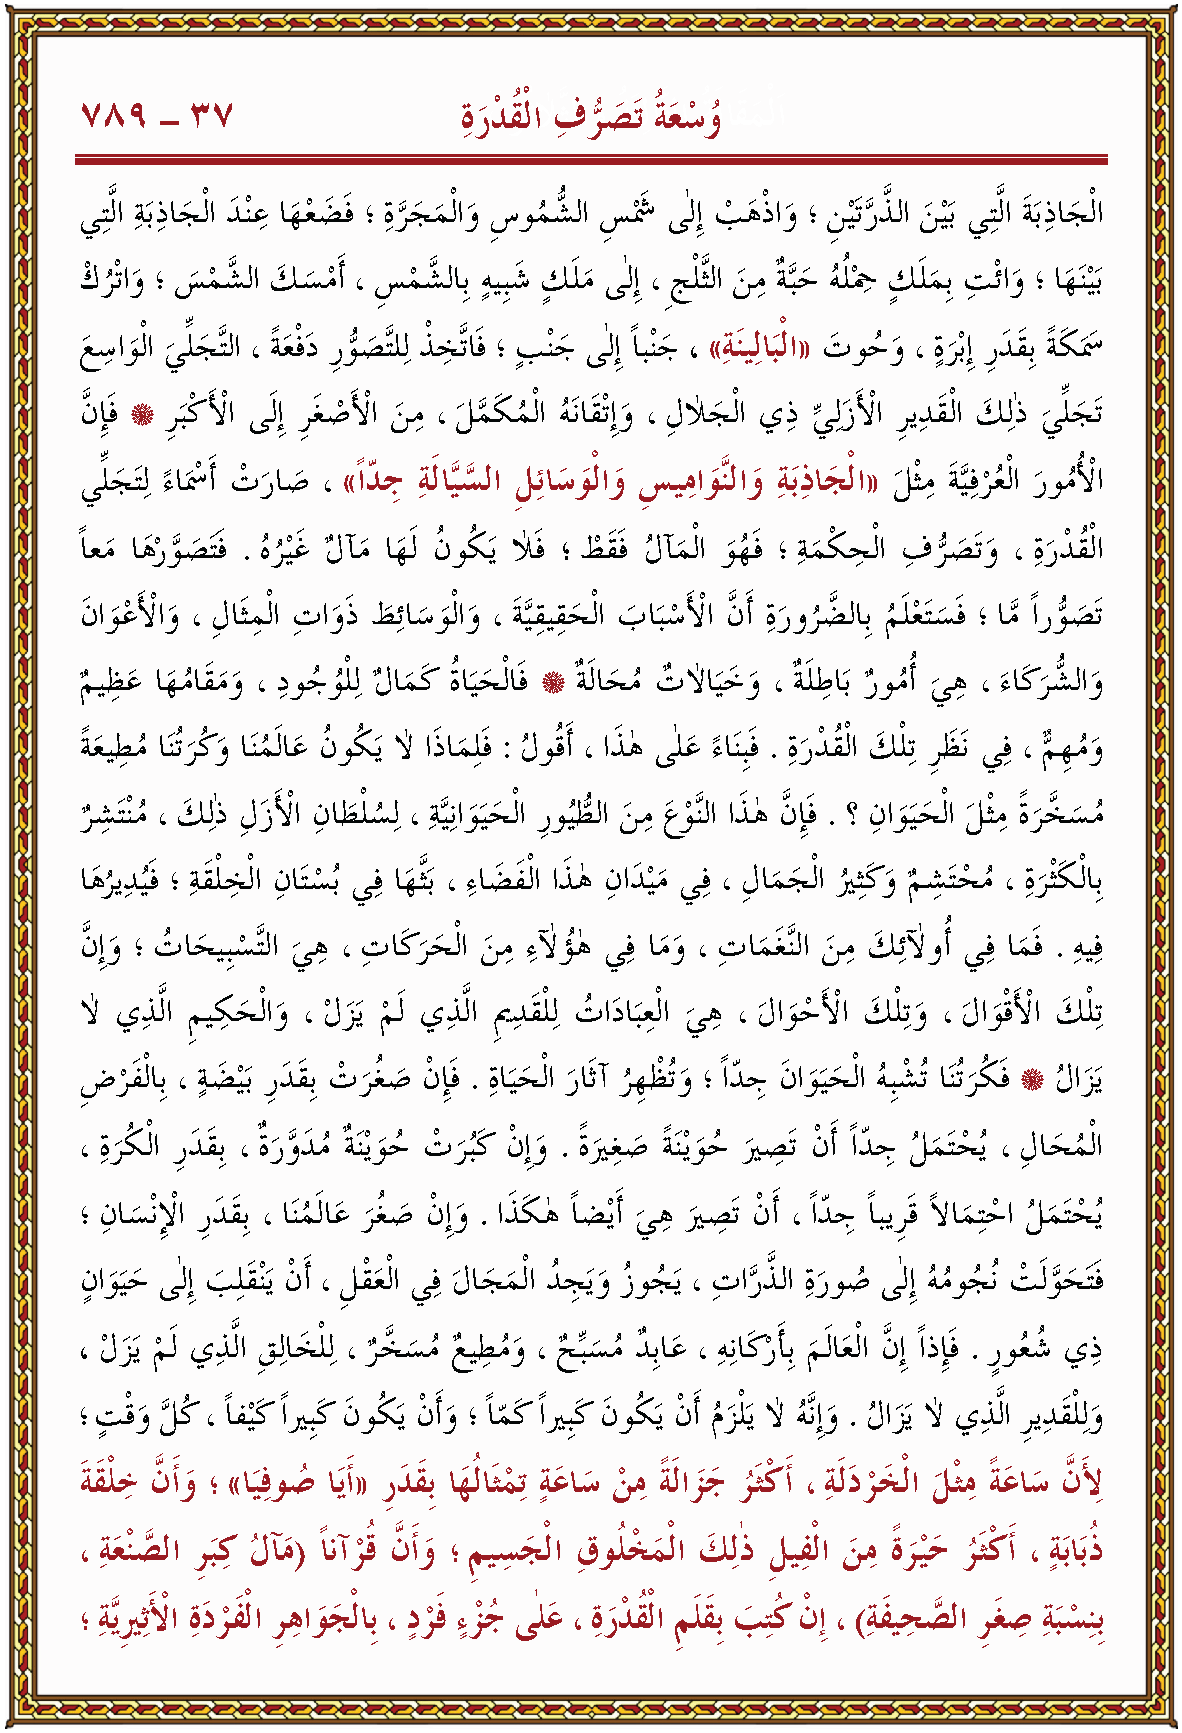 وُسْعَةُ تَصَرُّفِ الْقُدْرَةِ ٣٧ ـ ٧٨٩
الْجَاذِبَةَ الَّتِي بَيْنَ الذَّرَّتَيْنِ ؛ وَاذْهَبْ إِلٰى شَمْسِ الشُّمُوسِ وَالْمَجَرَّةِ ؛ فَضَعْهَا عِنْدَ الْجَاذِبَةِ الَّتِي
بَيْنَهَا ؛ وَائْتِ بِمَلَكٍ حِمْلُهُ حَبَّةٌ مِنَ الثَّلْجِ ، إِلٰى مَلَكٍ شَبِيهٍ بِالشَّمْسِ ، أَمْسَكَ الشَّمْسَ ؛ وَاتْرُكْ
سَمَكَةً بِقَدَرِ إِبْرَةٍ ، وَحُوتَ «الْبَالِينَةِ» ، جَنْباً إِلٰى جَنْبٍ ؛ فَاتَّخِذْ لِلتَّصَوُّرِ دَفْعَةً ، التَّجَلِّيَ الْوَاسِعَ
تَجَلِّيَ ذٰلِكَ الْقَدِيرِ الْأَزَلِيِّ ذِي الْجَلاٰلِ ، وَإِتْقَانَهُ الْمُكَمَّلَ ، مِنَ الْأَصْغَرِ إِلَى الْأَكْبَرِ ۞ فَإِنَّ
الْأُمُورَ الْعُرْفِيَّةَ مِثْلَ «الْجَاذِبَةِ وَالنَّوَامِيسِ وَالْوَسَائِلِ السَّيَّالَةِ جِدّاً» ، صَارَتْ أَسْمَاءً لِتَجَلِّي
الْقُدْرَةِ ، وَتَصَرُّفِ الْحِكْمَةِ ؛ فَهُوَ الْمَآلُ فَقَطْ ؛ فَلاٰ يَكُونُ لَهَا مَآلٌ غَيْرُهُ . فَتَصَوَّرْهَا مَعاً
تَصَوُّراً مَّا ؛ فَسَتَعْلَمُ بِالضَّرُورَةِ أَنَّ الْأَسْبَابَ الْحَقِيقِيَّةَ ، وَالْوَسَائِطَ ذَوَاتِ الْمِثَالِ ، وَالْأَعْوَانَ
وَالشُّرَكَاءَ ، هِيَ أُمُورٌ بَاطِلَةٌ ، وَخَيَالاٰتٌ مُحَالَةٌ ۞ فَالْحَيَاةُ كَمَالٌ لِلْوُجُودِ ، وَمَقَامُهَا عَظِيمٌ
وَمُهِمٌّ ، فِي نَظَرِ تِلْكَ الْقُدْرَةِ . فَبِنَاءً عَلٰى هٰذَا ، أَقُولُ : فَلِمَاذَا لاٰ يَكُونُ عَالَمُنَا وَكُرَتُنَا مُطِيعَةً
مُسَخَّرَةً مِثْلَ الْحَيَوَانِ ؟ . فَإِنَّ هٰذَا النَّوْعَ مِنَ الطُّيُورِ الْحَيَوَانِيَّةِ ، لِسُلْطَانِ الْأَزَلِ ذٰلِكَ ، مُنْتَشِرٌ
بِالْكَثْرَةِ ، مُحْتَشِمٌ وَكَثِيرُ الْجَمَالِ ، فِي مَيْدَانِ هٰذَا الْفَضَاءِ ، بَثَّهَا فِي بُسْتَانِ الْخِلْقَةِ ؛ فَيُدِيرُهَا
فِيهِ . فَمَا فِي أُولٰٓئِكَ مِنَ النَّغَمَاتِ ، وَمَا فِي هٰؤُلَٓاءِ مِنَ الْحَرَكَاتِ ، هِيَ التَّسْبِيحَاتُ ؛ وَإِنَّ
تِلْكَ الْأَقْوَالَ ، وَتِلْكَ الْأَحْوَالَ ، هِيَ الْعِبَادَاتُ لِلْقَدِيمِ الَّذِي لَمْ يَزَلْ ، وَالْحَكِيمِ الَّذِي لاٰ
يَزَالُ ۞ فَكُرَتُنَا تُشْبِهُ الْحَيَوَانَ جِدّاً ؛ وَتُظْهِرُ آثَارَ الْحَيَاةِ . فَإِنْ صَغُرَتْ بِقَدَرِ بَيْضَةٍ ، بِالْفَرْضِ
الْمُحَالِ ، يُحْتَمَلُ جِدّاً أَنْ تَصِيرَ حُوَيْنَةً صَغِيرَةً . وَإِنْ كَبُرَتْ حُوَيْنَةٌ مُدَوَّرَةٌ ، بِقَدَرِ الْكُرَةِ ،
يُحْتَمَلُ احْتِمَالاً قَرِيباً جِدّاً ، أَنْ تَصِيرَ هِيَ أَيْضاً هٰكَذَا . وَإِنْ صَغُرَ عَالَمُنَا ، بِقَدَرِ الْإِنْسَانِ ؛
فَتَحَوَّلَتْ نُجُومُهُ إِلٰى صُورَةِ الذَّرَّاتِ ، يَجُوزُ وَيَجِدُ الْمَجَالَ فِي الْعَقْلِ ، أَنْ يَنْقَلِبَ إِلٰى حَيَوَانٍ
ذِي شُعُورٍ . فَإِذاً إِنَّ الْعَالَمَ بِأَرْكَانِهِ ، عَابِدٌ مُسَبِّحٌ ، وَمُطِيعٌ مُسَخَّرٌ ، لِلْخَالِقِ الَّذِي لَمْ يَزَلْ ،
وَلِلْقَدِيرِ الَّذِي لاٰ يَزَالُ . وَإِنَّهُ لاٰ يَلْزَمُ أَنْ يَكُونَ كَبِيراً كَمّاً ؛ وَأَنْ يَكُونَ كَبِيراً كَيْفاً ، كُلَّ وَقْتٍ ؛
لِأَنَّ سَاعَةً مِثْلَ الْخَرْدَلَةِ ، أَكْثَرُ جَزَالَةً مِنْ سَاعَةٍ تِمْثَالُهَا بِقَدَرِ «أَيَا صُوفِيَا» ؛ وَأَنَّ خِلْقَةَ
ذُبَابَةٍ ، أَكْثَرُ حَيْرَةً مِنَ الْفِيلِ ذٰلِكَ الْمَخْلُوقِ الْجَسِيمِ ؛ وَأَنَّ قُرْآناً (مَآلُ كِبَرِ الصَّنْعَةِ ،
بِنِسْبَةِ صِغَرِ الصَّحِيفَةِ) ، إِنْ كُتِبَ بِقَلَمِ الْقُدْرَةِ ، عَلٰى جُزْءٍ فَرْدٍ ، بِالْجَوَاهِرِ الْفَرْدَةِ الْأَثِيرِيَّةِ ؛